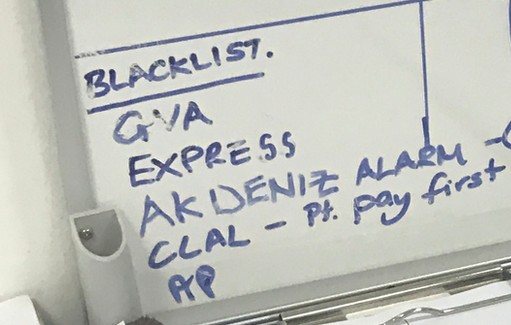 BLACKLIST.
GVA
EXPRESS
AKDENIZ ALARM -
CLAL - Pt. pay first
AP